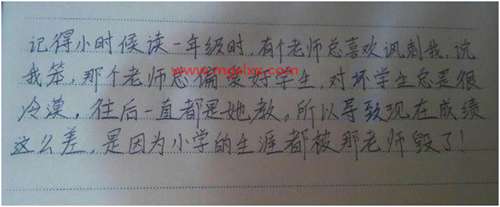 记得小时候读一年级时，有个老师总喜欢讽刺我，说
我笨，那个老师总偏爱好学生，对坏学生总是很
www.mgslxs.com
冷漠，往后一直都是她教。所以导致现在成绩
这么差，是因为小学的生涯都被那老师毁了！